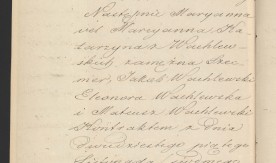 Następnie Maryanna
vel Maryanna Ka
tarzyna z Wachlew
skich zamężna Szc
mer, Jakub Wachlewski
Eleonora Wachlewska
i Mateusz Wachlewski
Kontraktem z dnia
Dwudziestego piątego